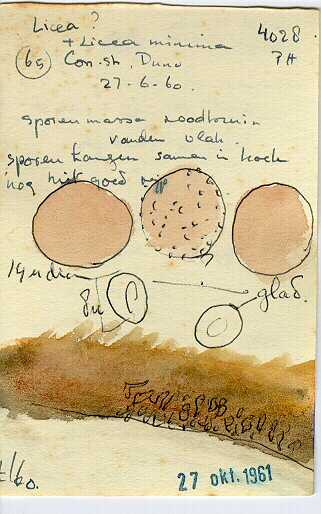 Licea?
4028
+ Licea minima
(65) Con. st. Duno
27-6-60.
sporenmassa roodbruin
vanden vlak.
sporen hangen samen in hoek
nog niet goed rijp
19μ diam
8μ
glad.
t/60.
27 okt. 1961